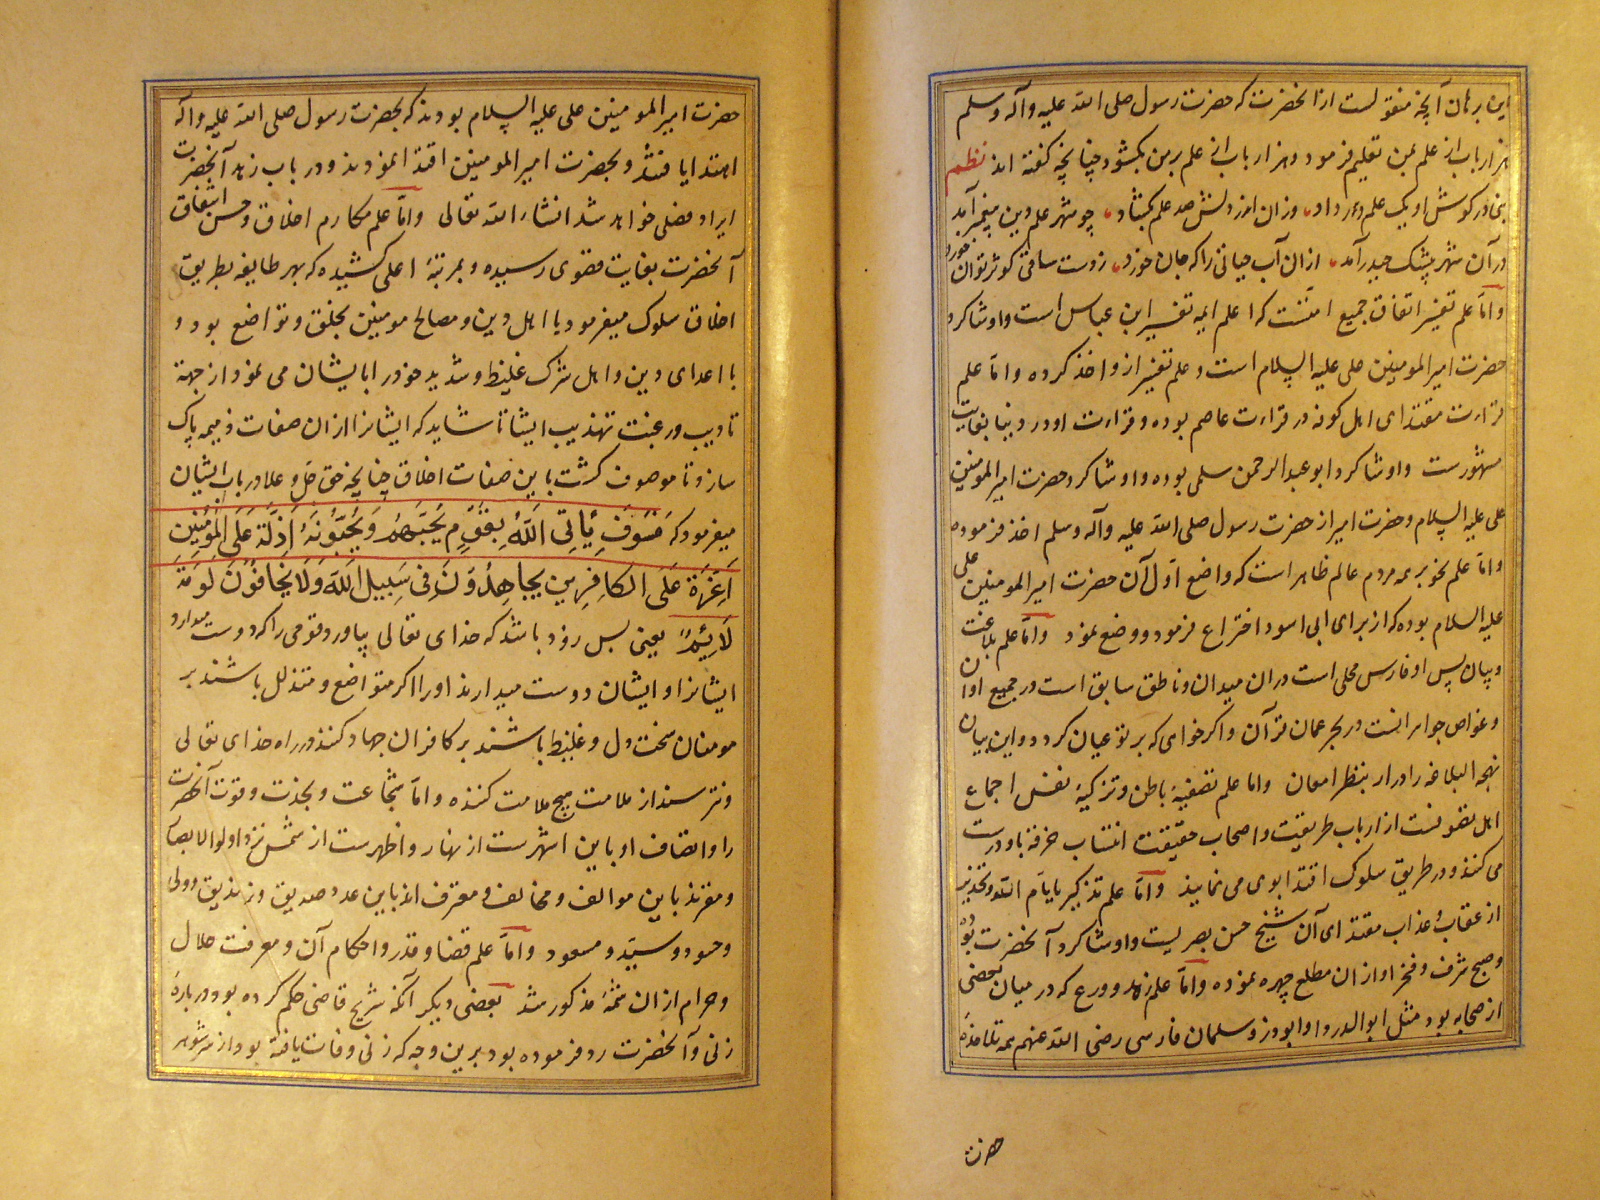 این برهان آنچه منقولست ازانحضرت که حضرت رسول صلی الله علیه وآله وسلم
هزار باب از علم بمن تعلیم فرمود و هزار باب از علم بر من بکشود چنانچه کفته اند نظم
نبی در کوش او یک علم در داد وزان اندر دلش صد علم بکشاد چو شهر علم دین پیغمبر آمد
در آن شهر بیشک حیدر آمد ازان آب حیاتی را که جان خورد ز دست ساقی کوثر توان خورد
واما علم تفسیر اتفاق جمیع امتست که اعلم ایمه تفسیر ابن عباس است واو شاکرد
حضرت امیرالمومنین علی علیه السلام است وعلم تفسیر ازو اخذ کرده واما علم
قراءت مقتدای اهل کوفه در قراءت عاصم بوده وقراءت او در دنیا بغایت
مشهورست واو شاکرد ابو عبد الرحمن سلمی بوده واو شاکرد حضرت امیرالمومنین
علی علیه السلام وحضرت امیر از حضرت رسول صلی الله علیه وآله وسلم اخذ فرموده
واما علم نحو بر همه مردم عالم ظاهر است که واضع اول آن حضرت امیرالمومنین علی
علیه السلام بوده که از برای ابی اسود اختراع فرمود ووضع نمود واما علم بلاغت
وبیان پس او فارس مجلی است در ان میدان وناطق سابق است در جمیع اوان
وغواص جواهر انست در بحر عمان قرآن واکر خواهی که بر تو عیان کردد واین بیان
نهج البلاغه را در ار بنظر امعان واما علم تصفیهٔ باطن وتزکیهٔ نفس اجماع
اهل تصوفست از ارباب طریقت واصحاب حقیقت انتساب خرقه باو درست
می کنند ودر طریق سلوک اقتدا بوی می نمایند واما علم تذکیر بایام الله وتحذیر
از عقاب وعذاب مقتدای آن شیخ حسن بصریست واو شاکرد آنحضرت بوده
وصبح شرف وفخر او از ان مطلع چهره نموده واما علم زهد وورع که در میان بعضی
از صحابه بود مثل ابوالدرداء وابوذر وسلمان فارسی رضی الله عنهم همه تلامذهٔ
حضرت
حضرت امیرالمومنین علی علیه السلام بودند که بحضرت رسول صلی الله علیه وآله
اهتدا یافتند وبحضرت امیرالمومنین اقتدا نمودند ودر باب زهد آنحضرت
ایراد فصلی خواهد شد انشاءالله تعالی واما علم مکارم اخلاق وحسن اشفاق
آنحضرت بغایت قصوی رسیده وبمرتبهٔ اعلی کشیده که بهر طایفه بطریق
اخلاق سلوک میفرمود با اهل دین ومصالح مومنین بخلق وتواضع بود و
با اعدای دین واهل شرک غلیظ وشدید خود را بایشان می نمود از جهة
تادیب ورغبت تهذیب ایشان تا شاید که ایشانرا ازان صفات ذمیمه پاک
سازد تا موصوف کشت باین صفات اخلاق چنانچه حق جل وعلا در باب ایشان
میفرمود که فَسَوْفَ یَأتِی اللهُ بِقَوْمٍ یُحِبُّهُمْ وَیُحِبُّونَهُ اَذِلَّةٍ عَلَی المُؤْمِنِینَ
اَعِزَّةٍ عَلَی الکَافِرِینَ یُجَاهِدُونَ فِی سَبِیلِ اللهِ وَلَا یَخَافُونَ لَوْمَةَ
لَائِمٍ یعنی پس زود باشد که خدای تعالی بیاورد قومی را که دوست میدارد
ایشانرا وایشان دوست میدارند اورا اکر متواضع ومتذلل باشند بر
مومنان سخت دل وغلیظ باشند بر کافران جهاد کنند در راه خدای تعالی
ونترسند از ملامت هیچ ملامت کننده واما شجاعت ونجدت وقوت آنحضرت
را واتصاف او باین اشهرست از نهار واظهرست از شمس نزد اولوالابصار
ومقرند باین موالف ومخالف ومعترف اند باین عدو صدیق وزندیق وولی
وحسود وسید ومسعود واما علم قضا وقدر واحکام آن ومعرفت حلال
وحرام از ان شمهٔ مذکور شد بعضی دیکر آنکه شریح قاضی حکم کرده بود در بارهٔ
زنی وآنحضرت رد فرموده بود برین وجه که زنی وفات یافته بود از شوهر